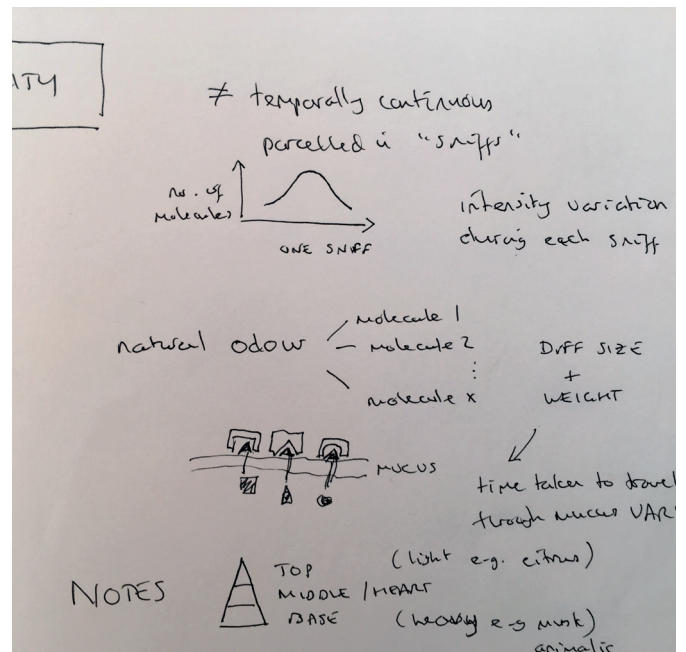 ITY
≠ temporally continuous
parcelled in "sniffs"
no. of
molecules
ONE SNIFF
intensity variation
during each sniff
natural odour
molecule 1
molecule 2
⋮
molecule x
DIFF SIZE
+
WEIGHT
MUCUS
time taken to travel
through mucus VAR
NOTES
TOP (light e.g. citrus)
MIDDLE / HEART
BASE (heavy e-g musk)
animalic